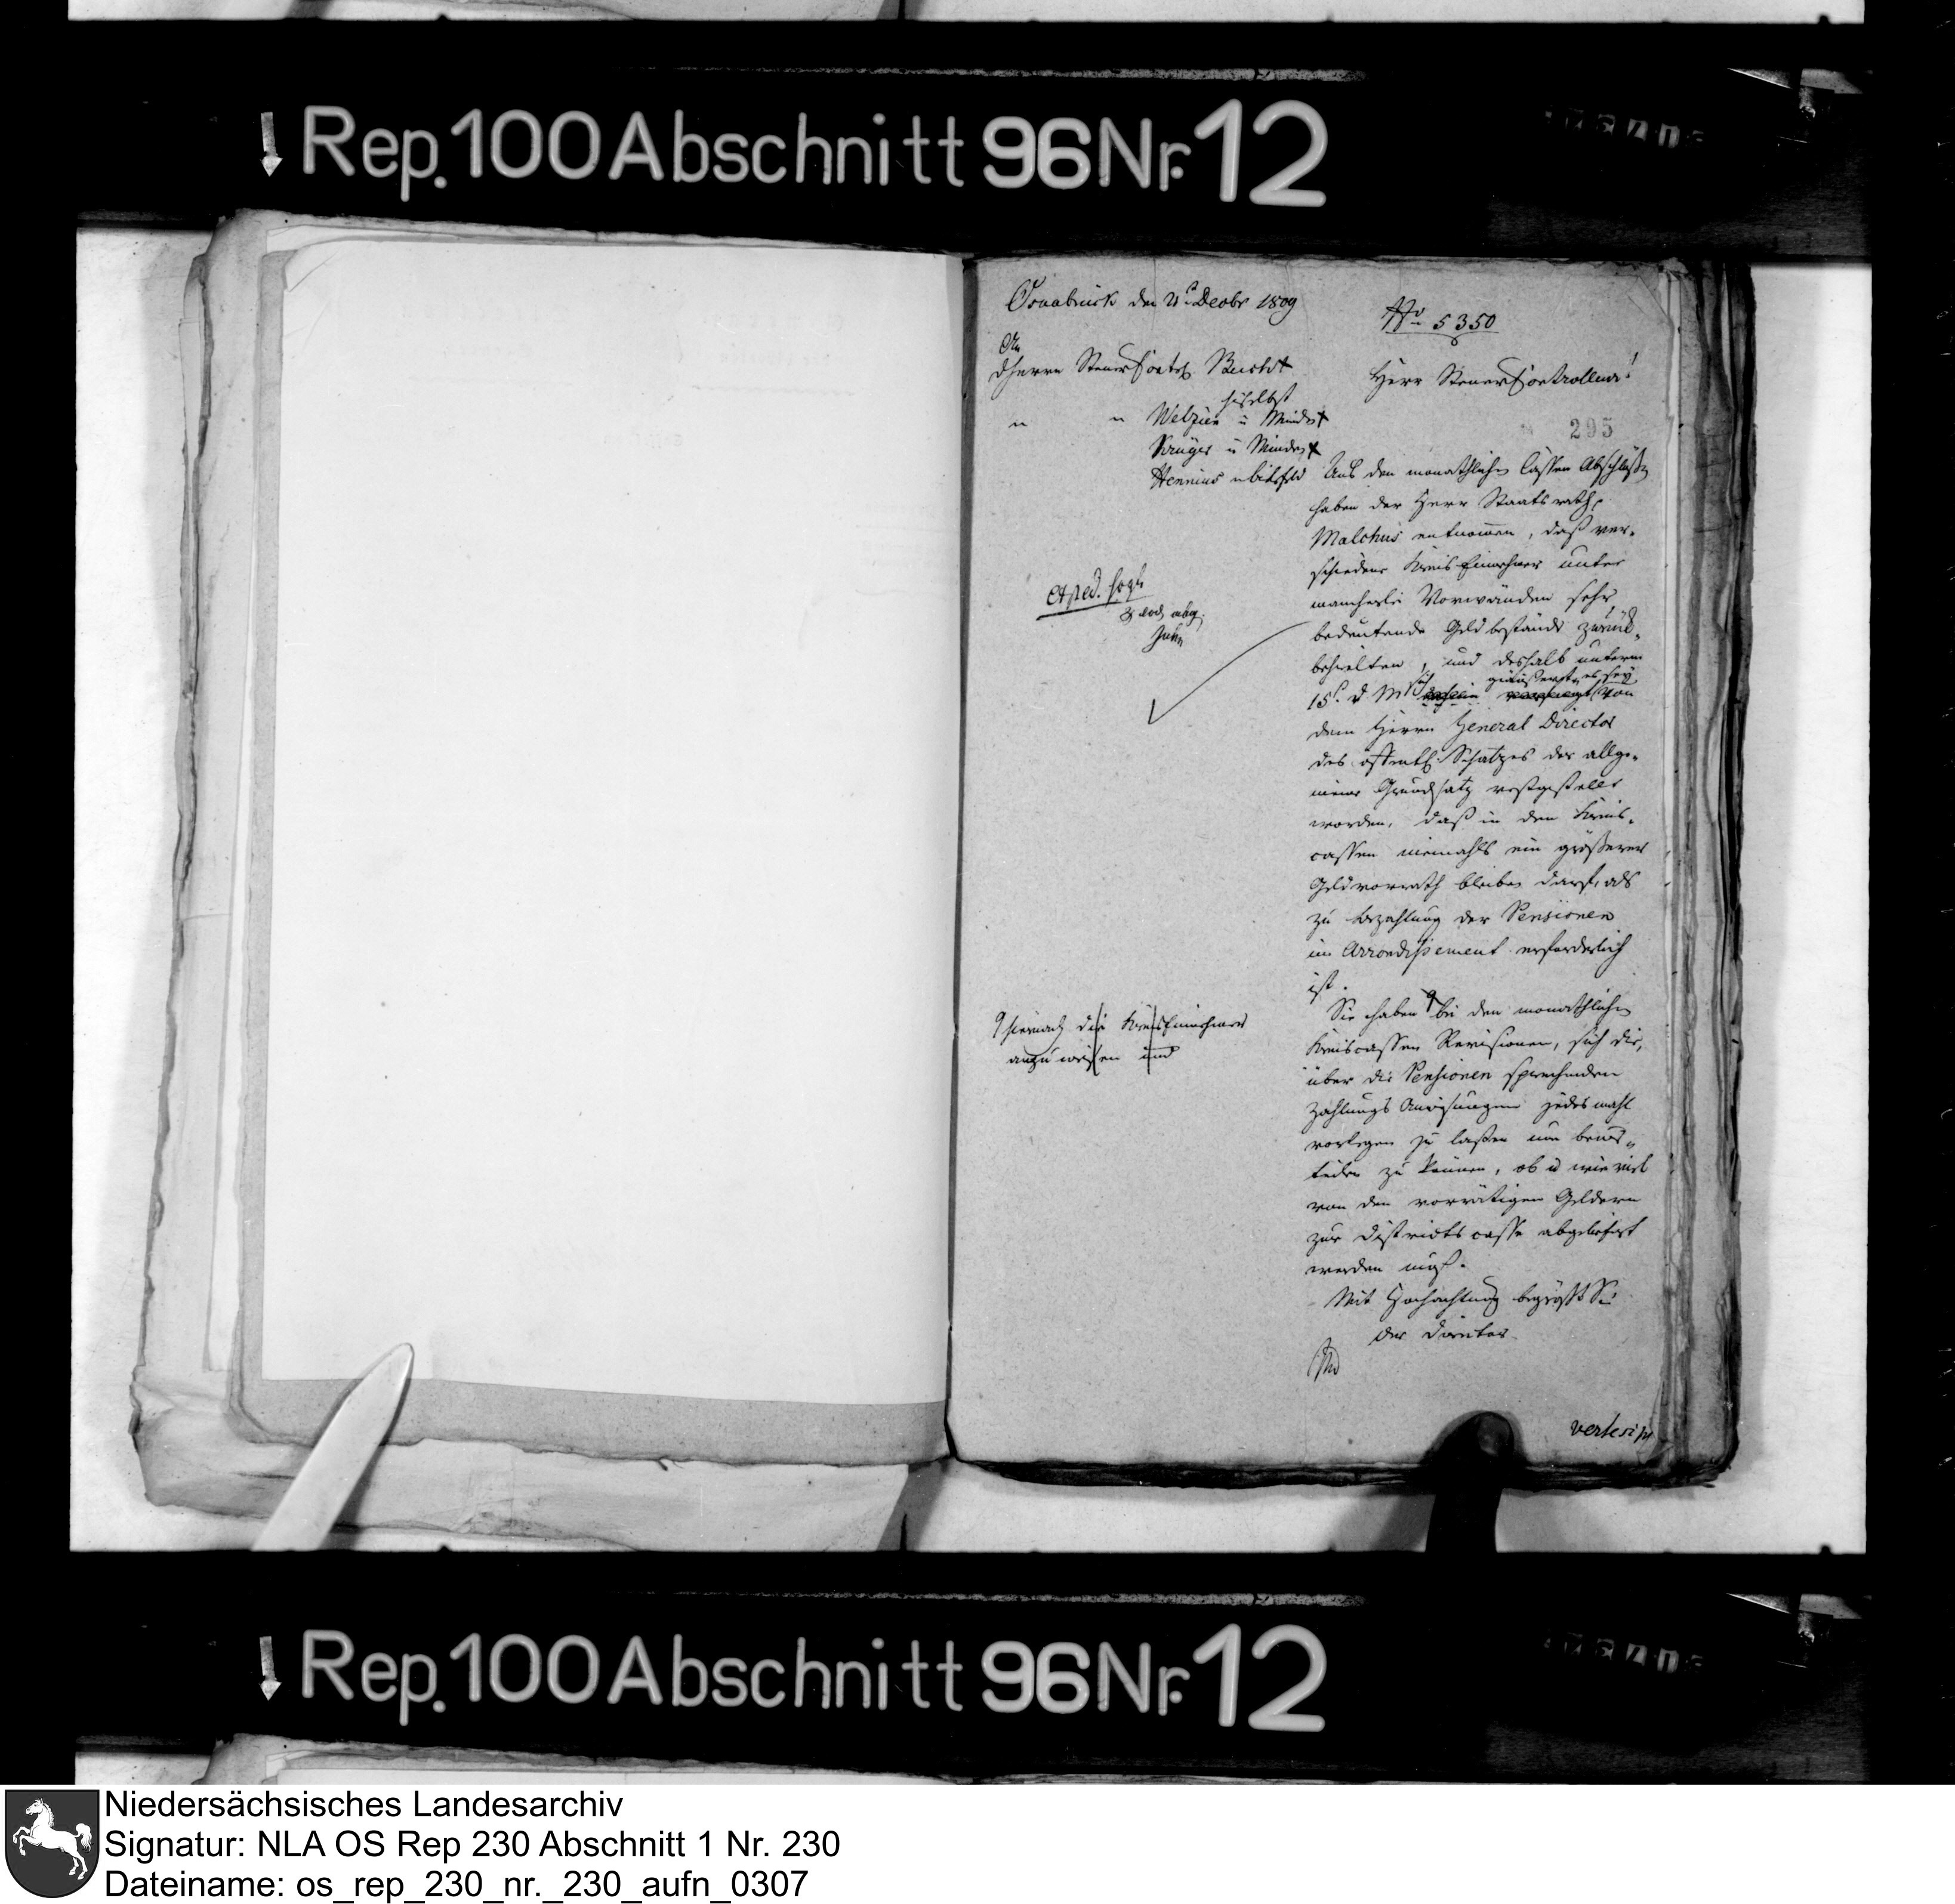 Rep. 100 Abschnitt 96 Nr. 12
Osnabrück den 21t Decbr 1809
No 5350
An
d Herrn SteuerContrl
hieselbst
" " Welzien u Minden
Krüger u Minden
Hennius
Herr SteuerControlleur!
295
Aus den monathlichen Cassen Abschlüßen
haben der Herr Staatsrath
Malchus entnommen, daß ver-
schiedene Kreis Einnehmer unter
mancherlei Vorwänden sehr
bedeutende Geldbestände zurük-
behielten, und deshalb unterm
geäußert, es sey
15t d M von
dem Herrn General Director
des öffentl. Schatzes der allge-
meine Grundsatz vestgestellt
worden, daß in den Kreis-
cassen niemahls ein größerer
Geldvorrath bleiben darf, als
zu Bezahlung der Pensionen
im Arrondissement erforderlich
ist.
expd.
Sie haben bei den monathlichen
Kreiscassen Revisionen, sich die,
über die Pensionen sprechenden
Zahlungs Anweisungen jedesmahl
vorlegen zu laßen um beur-
teilen zu können, ob u wie viel
von den vorrätigen Geldern
zur Districtscasse abgeliefert
werden muß.
hiernach die KreisEinnehmer
anzuweisen und
Mit Hochachtung begrüßt Sie
der Director
Rep. 100 Abschnitt 96 Nr. 12
Niedersächsisches Landesarchiv
Signatur: NLA OS Rep 230 Abschnitt 1 Nr. 230
Dateiname: os_rep_230_nr._230_aufn_0307